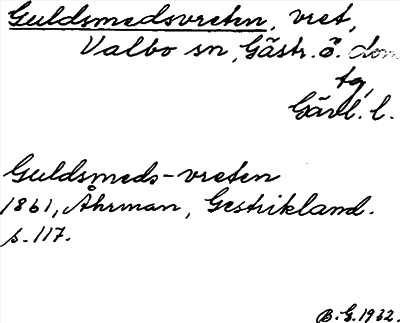 Guldsmedsvreten, vret,
Valbo sn, Gästr. ö. dom
tg,
Gävl. l.
Guldsmeds-vreten
1861, Åhrman, Gestrikland.
s. 117.
B. G. 1932.